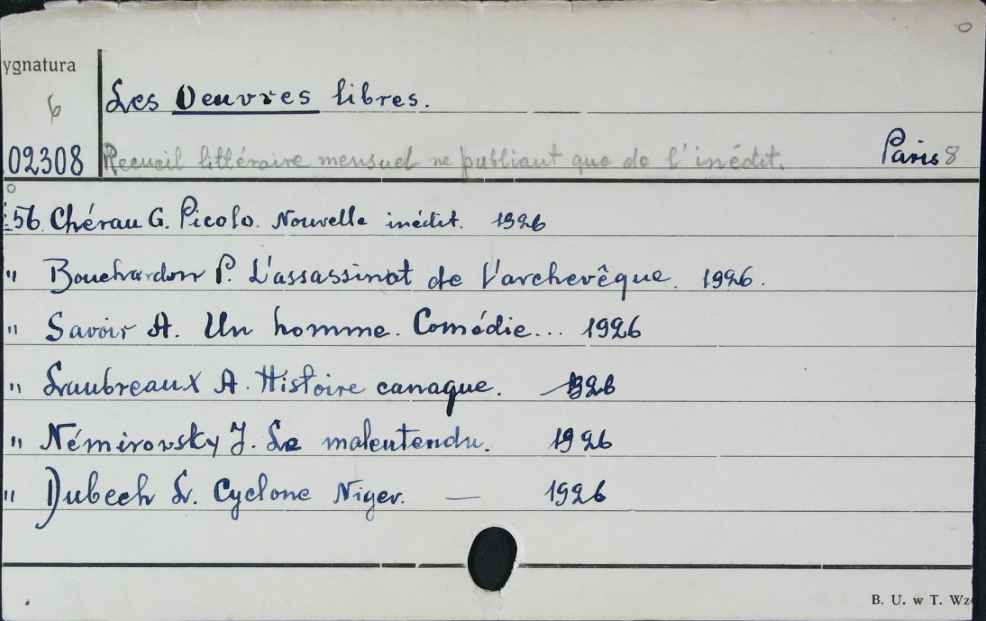 ygnatura
6
Les Oeuvres libres.
02308 Recueil littéraire mensuel ne publiant que de l'inédit. Paris 8
56. Chérau G. Picolo. Nouvelle inédit. 1926
" Bouchardon P. L'assassinat de l'archevêque. 1926.
" Savoir A. Un homme. Comédie... 1926
" Laubreaux A. Histoire canaque. 1926
" Némirovsky J. Le malentendu. 1926
" Dubech L. Cyclone Niger. — 1926
B. U. w T. Wz